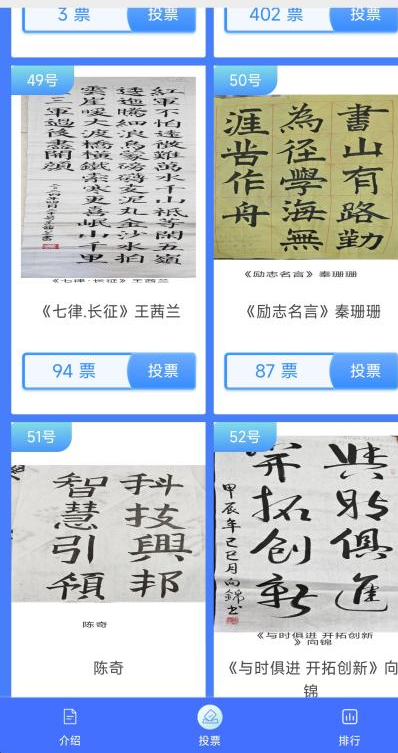 3 票
投票
402 票
投票
49号
紅軍不怕遠徵難萬水千山
五嶺
逶迤騰細浪烏蒙磅礴走泥丸金沙水拍
雲崖暖大渡橋橫鐵索寒更喜岷山千里
三軍過後盡開顏
《七律.长征》王茜兰
《七律.长征》王茜兰
94 票
投票
50号
書山有路勤
為径學海無
涯苦作舟
《励志名言》秦珊珊
《励志名言》秦珊珊
87 票
投票
51号
科技興邦
智慧引領
陈奇
陈奇
52号
與時俱進
开拓创新
甲辰年己巳月向錦书
《与时俱进 开拓创新
》向锦
《与时俱进 开拓创新》向
锦
介绍
投票
排行